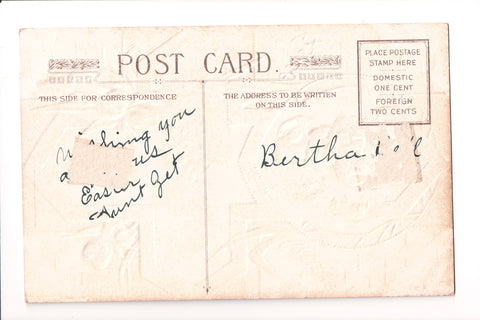 POST CARD.
PLACE POSTAGE
STAMP HERE
DOMESTIC
ONE CENT
FOREIGN
TWO CENTS
THIS SIDE FOR CORRESPONDENCE
THE ADDRESS TO BE WRITTEN
ON THIS SIDE.
Wishing you
a
Easter
Aunt Get
Bertha